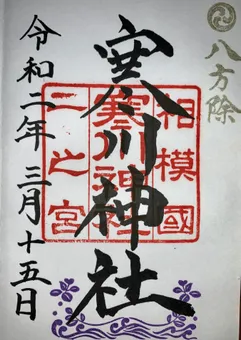 八方除
相模國
寒川神社
寒川神社
一之宮
令和二年三月十五日